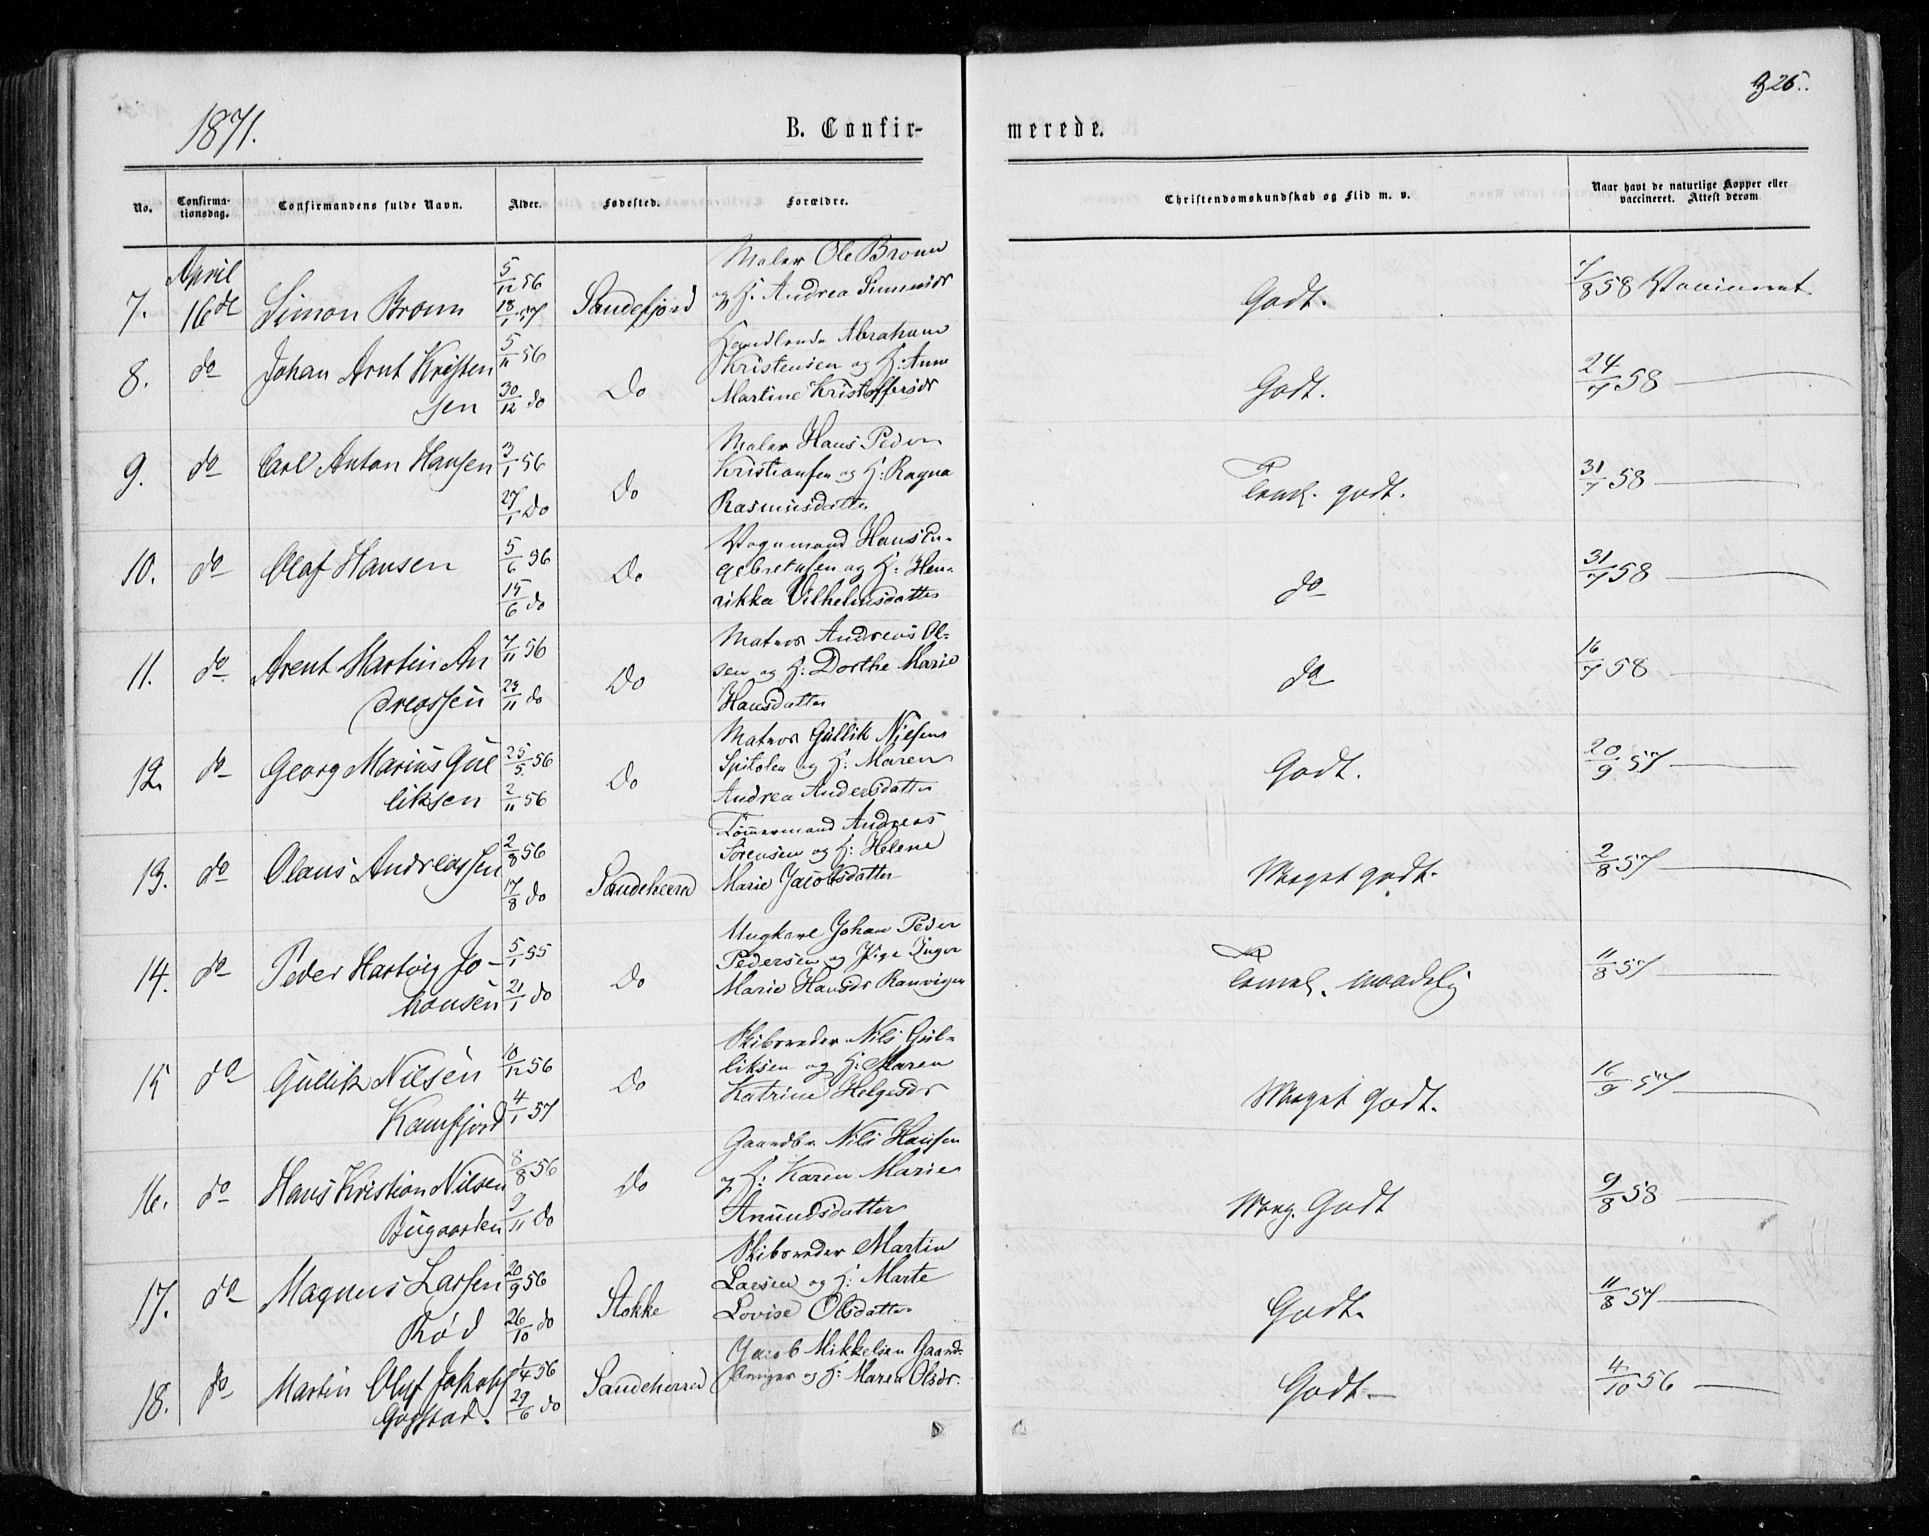 1871.
B. Confir-
merede.
325.
No.
Confirma-
tionsdag.
Confirmandens fulde Navn.
Alder.
Fødested.
Forældre.
Christendomskundskab og Flid m. v.
Naar havt de naturlige Kopper eller
vaccineret. Attest derom
April
7. 16de Simon Bronn 5/12 56 18/1 57 Sandefjord
Maler Ole Bronn
og H. Andrea Simensdr
Godt.
7/8 58 Vaccineret
8. do Johan Arnt Kristen
sen 5/11 56 30/12 do Do
Handlende Abraham
Kristensen og H: Anne
Martine Kristoffersdr
Godt.
24/7 58
9. do Carl Anton Hansen 3/1 56 27/1 Do Do
Maler Hans Peder
Kristiansen og H: Ragna
Rasmusdatter
Teml. godt.
31/7 58
10. do Olaf Hansen 5/6 56 15/6 do Do
Vognmand Hans En-
gebretsen og H: Hen-
rikka Vilhelmsdatter
do
31/7 58
11. do Arent Martin An
dreassen 7/11 56 23/11 do Do
Matros Andreas Ol-
sen og H: Dorthe Marie
Hansdatter
do
16/7 58
12. do Georg Marius Gul
liksen 25/5 56 2/11 56 Do
Matros Gullik Nilsen
Spitalen og H: Maren
Andrea Andersdatter
Godt.
20/9 57
13. do Olaus Andreassen 2/8 56 17/8 do Sandeherred
Tømmermand Andreas
Sørensen og H: Helene
Marie Jacobsdatter
Meget godt.
2/8 57
14. do Peder Hartvig Jo-
hansen 5/1 55 21/1 do Do
Ungkarl Johan Peder
Pedersen og Pige Inger
Marie Hansdr Ranvigen
Temel. maadelig
11/8 57
15 do Gullik Nilsen
Kamfjord 10/12 56 4/1 57 Do
Skibsreder Nils Gul-
liksen og H: Maren
Katrine Helgesdr
Meget Godt.
16/9 57
16. do Hans Kristian Nilsen
Bugaarden 8/8 56 9/11 do Do
Gaardbr. Nils Hansen
og H: Karen Marie
Amundsdatter
Meg. Godt
9/8 58
17. do Magnus Larsen
Rød 20/9 56 26/10 do Stokke
Skibsreder Martin
Larsen og H: Marte
Lovise Olsdatter
Godt.
11/8 57
18. do Martin Oluf Jakobs
Gogstad. 1/4 56 29/6 do Sandeherred
Jacob Mikkelsen Gaard-
bruger og H: Maren Olsdr.
Godt.
4/10 56